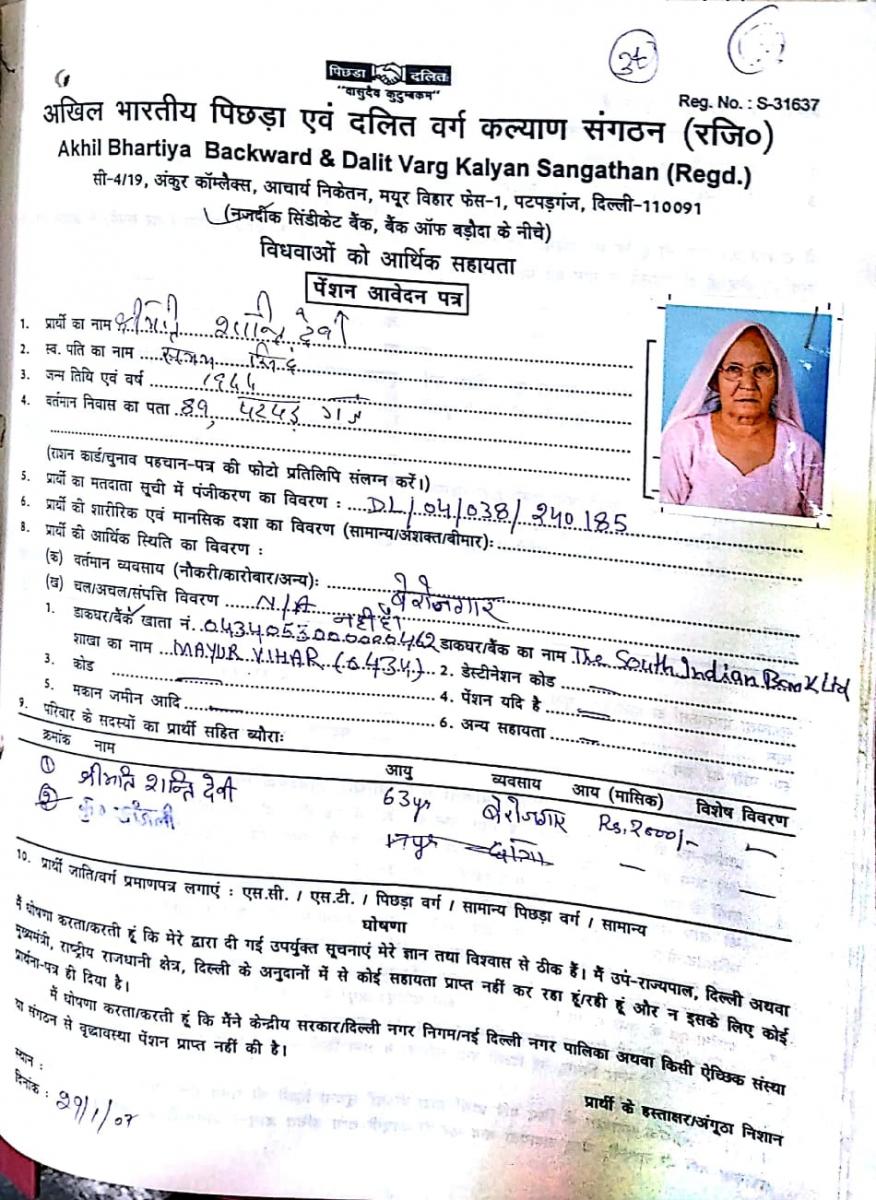 34
पिछड़ा दलित
"वासुदेव कुटुम्बकम"
Reg. No. : S-31637
अखिल भारतीय पिछड़ा एवं दलित वर्ग कल्याण संगठन (रजि०)
Akhil Bhartiya Backward & Dalit Varg Kalyan Sangathan (Regd.)
सी-4/19, अंकुर कॉम्लैक्स, आचार्य निकेतन, मयूर विहार फेस-1, पटपड़गंज, दिल्ली-110091
(नजदीक सिंडीकेट बैंक, बैंक ऑफ बड़ौदा के नीचे)
विधवाओं को आर्थिक सहायता
पेंशन आवेदन पत्र
1. प्रार्थी का नाम श्रीमति शान्ति देवी
2. स्व. पति का नाम
3. जन्म तिथि एवं वर्ष 1944
4. वर्तमान निवास का पता 89, पटपड़ गंज
(राशन कार्ड/चुनाव पहचान-पत्र की फोटो प्रतिलिपि संलग्न करें।)
5. प्रार्थी का मतदाता सूची में पंजीकरण का विवरण : DL/04/038/240185
6. प्रार्थी की शारीरिक एवं मानसिक दशा का विवरण (सामान्य/अंशक्त/बीमार):
8. प्रार्थी की आर्थिक स्थिति का विवरण :
(क) वर्तमान व्यवसाय (नौकरी/कारोबार/अन्य): बेरोजगार
(ख) चल/अचल/संपत्ति विवरण N/A नहीं है
1. डाकघर/बैंक खाता नं. 0434053000000462 डाकघर/बैंक का नाम The South Indian Bank Ltd
शाखा का नाम MAYUR VIHAR (0434) 2. डेस्टीनेशन कोड
3. कोड 4. पेंशन यदि है
5. मकान जमीन आदि 6. अन्य सहायता
9. परिवार के सदस्यों का प्रार्थी सहित ब्यौराः
क्रमांक नाम आयु व्यवसाय आय (मासिक) विशेष विवरण
① श्रीमति शान्ति देवी 63yr बेरोजगार Rs. 2000/-
② कु० अंजली
10. प्रार्थी जाति/वर्ग प्रमाणपत्र लगाएं : एस.सी. / एस.टी. / पिछड़ा वर्ग / सामान्य पिछड़ा वर्ग / सामान्य
घोषणा
मैं घोषणा करता/करती हूं कि मेरे द्वारा दी गई उपर्युक्त सूचनाएं मेरे ज्ञान तथा विश्वास से ठीक हैं। मैं उप-राज्यपाल, दिल्ली अथवा
मुख्यमंत्री, राष्ट्रीय राजधानी क्षेत्र, दिल्ली के अनुदानों में से कोई सहायता प्राप्त नहीं कर रहा हूं/रही हूं और न इसके लिए कोई
प्रार्थना-पत्र ही दिया है।
में घोषणा करता/करती हूं कि मैंने केन्द्रीय सरकार/दिल्ली नगर निगम/नई दिल्ली नगर पालिका अथवा किसी ऐच्छिक संस्था
या संगठन से वृद्धावस्था पेंशन प्राप्त नहीं की है।
स्थान :
दिनांक : 29/1/07
प्रार्थी के हस्ताक्षर/अंगूठा निशान